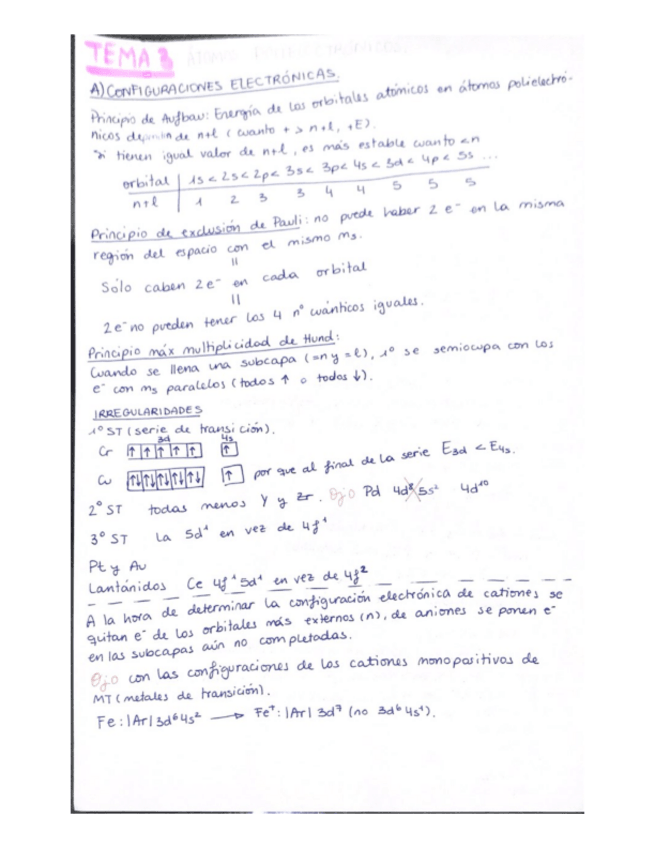 TEMA 3 ÁTOMOS POLIELECTRÓNICOS.
A) CONFIGURACIONES ELECTRÓNICAS.
Principio de Aufbau: Energía de los orbitales atómicos en átomos polielectró-
nicos depende de n+l (cuanto + > n+l, +E).
Si tienen igual valor de n+l, es más estable cuanto <n
orbital | 1s < 2s < 2p < 3s < 3p < 4s < 3d < 4p < 5s ...
n+l | 1 2 3 3 4 4 5 5 5
Principio de exclusión de Pauli: no puede haber 2 e⁻ en la misma
región del espacio con el mismo ms.
||
Sólo caben 2e⁻ en cada orbital
||
2e⁻ no pueden tener los 4 nº cuánticos iguales.
Principio máx multiplicidad de Hund:
Cuando se llena una subcapa (=n y =l), 1º se semiocupa con los
e⁻ con ms paralelos (todos ↑ o todos ↓).
IRREGULARIDADES
1º ST (serie de transición).
3d 4s
Cr ↑ ↑ ↑ ↑ ↑ ↑
Cu ↑↓ ↑↓ ↑↓ ↑↓ ↑↓ ↑ por que al final de la serie E3d < E4s.
2º ST todas menos Y y Zr. Ojo Pd 4d⁸5s² 4d¹⁰
3º ST La 5d¹ en vez de 4f¹
Pt y Au
Lantánidos Ce 4f¹5d¹ en vez de 4f²
A la hora de determinar la configuración electrónica de cationes se
quitan e⁻ de los orbitales más externos (n), de aniones se ponen e⁻
en las subcapas aún no completadas.
Ojo con las configuraciones de los cationes monopositivos de
MT (metales de transición).
Fe: |Ar| 3d⁶4s² → Fe⁺: |Ar| 3d⁷ (no 3d⁶4s¹).